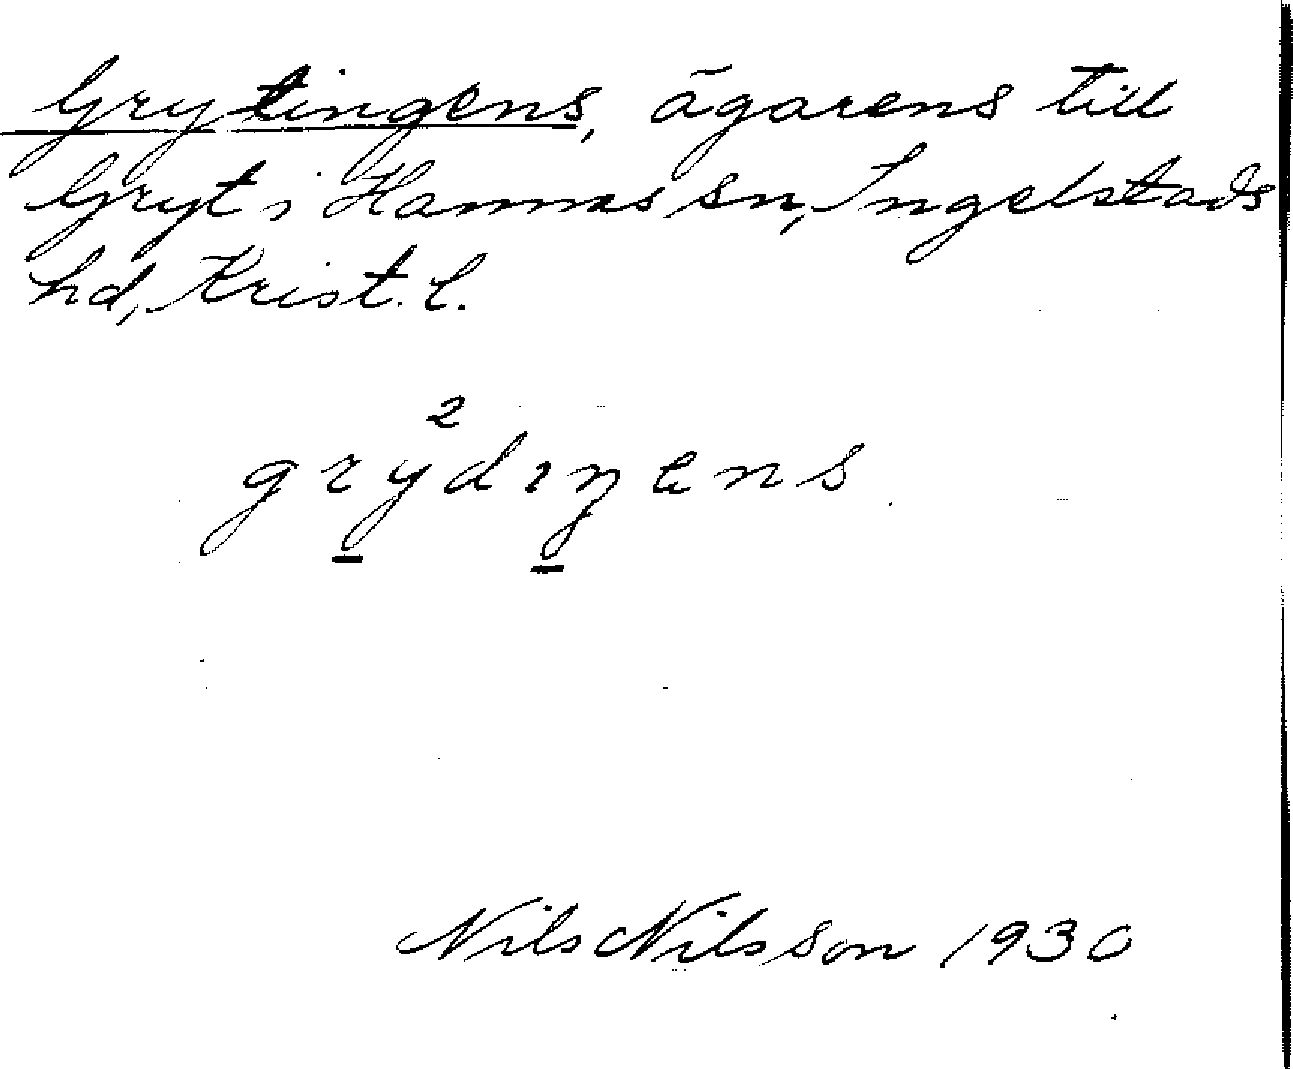 Grytingens, ägarens till
Gryt i Hannas sn, Ingelstads
hd, Krist. l.
2
grydıŋens
Nils Nilsson 1930